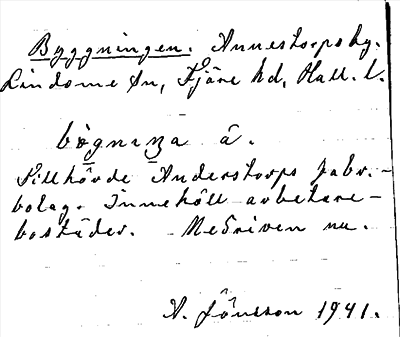 Byggningen. Annestorps by.
Lindome sn, Fjäre hd, Hall. l.
bògniŋa â.
Tillhörde Anderstorps fabr.-
bolag. Innehöll arbetare-
bostäder. Nedriven nu.
A. Jönsson 1941.